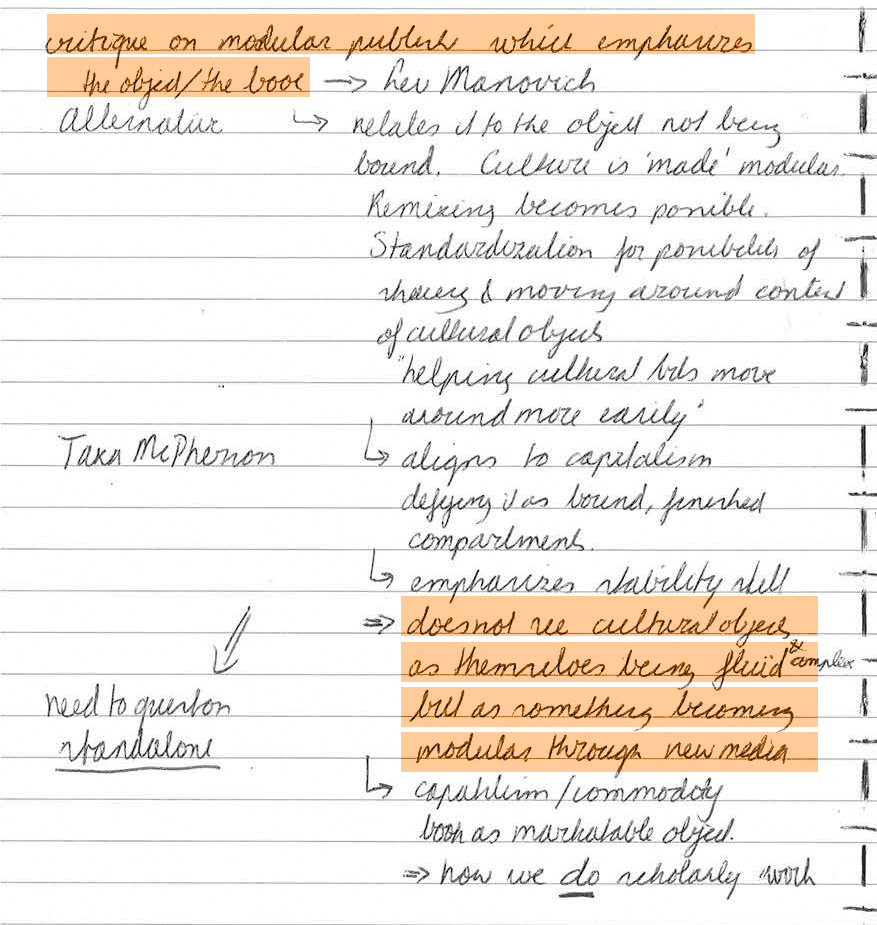 critique on modular publish which emphasizes
the object/the book → Lev Manovich
Alternative ↳ relates it to the object not being
bound. Culture is 'made' modular.
Remixing becomes possible.
Standardization for possibilities of
sharing & moving around content
of cultural objects
"helping cultural bits move
around more easily"
Tara McPherson ↳ aligns to capitalism
defying it as bound, finished
compartments.
↳ emphasizes stability still
⇒ does not see cultural objects
as themselves being fluid & complex
but as something becoming
modular through new media
need to question
standalone
↳ capitalism/commodity
book as marketable object.
⇒ how we do scholarly work